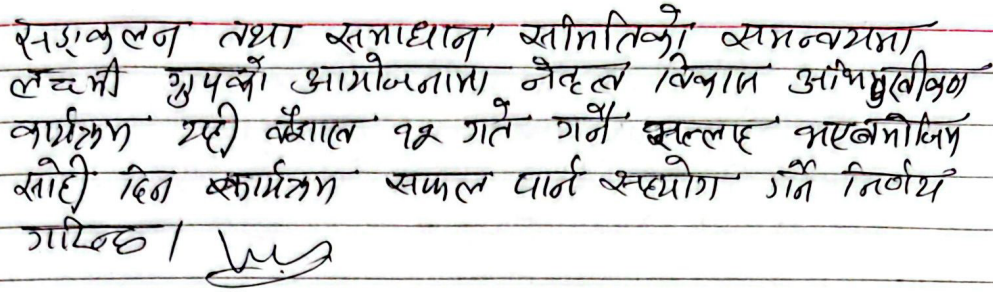 सङ्कलन तथा समाधान समितिको समन्वयमा
लक्ष्मी ग्रुपको आयोजनामा नेतृत्व विकास अभिमुखीकरण
कार्यक्रम यही वैशाख १२ गते गर्ने सल्लाह भएबमोजिम
सोही दिन कार्यक्रम सफल पार्न सहयोग गर्ने निर्णय
गरिन्छ।